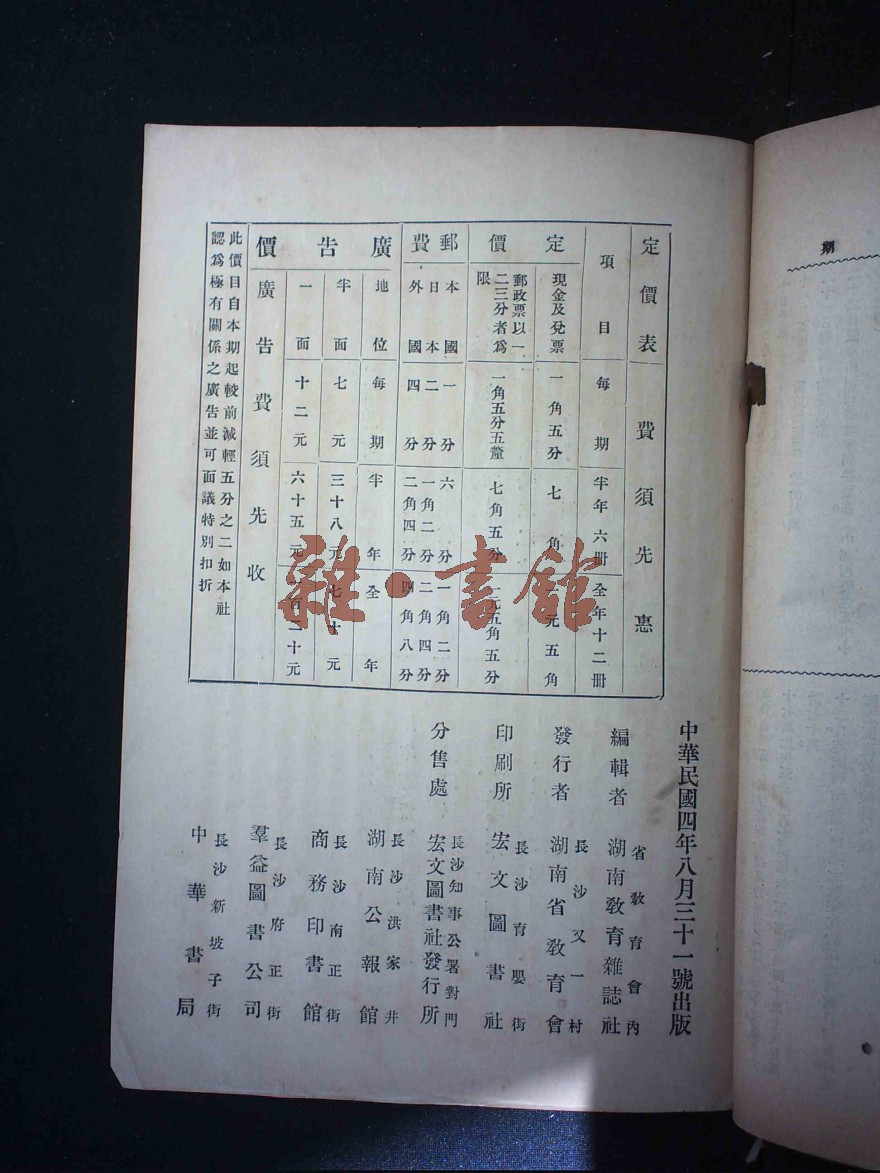 期
定價表　費須先惠
項目　每期　半年六冊　全年十二冊
定價
現金及兌票　一角五分　七角　元五角
郵政票以一二三分者爲限　一角五分五釐　七角五分　一元五角五分
郵費
本國　一分　六分　一角二分
日本　二分　一角二分　二角四分
外國　四分　二角四分　四角八分
廣告價
地位　每期　半年　全年
半面　七元　三十八元　七十元
一面　十二元　六十五元　百二十元
廣告費須先收
此價目自本期起較前減輕五分之二如本社
認爲極有關係之廣告並可面議特別扣折
中華民國四年八月三十一號出版
編輯者　省敎育會內　湖南敎育雜誌社
發行者　長沙又一村　湖南省敎育會
印刷所　長沙育嬰街　宏文圖書社
分售處　長沙知事公署對門　宏文圖書社發行所
長沙洪家井　湖南公報館
長沙南正街　商務印書館
長沙府正街　羣益圖書公司
長沙新坡子街　中華書局
雜·書館